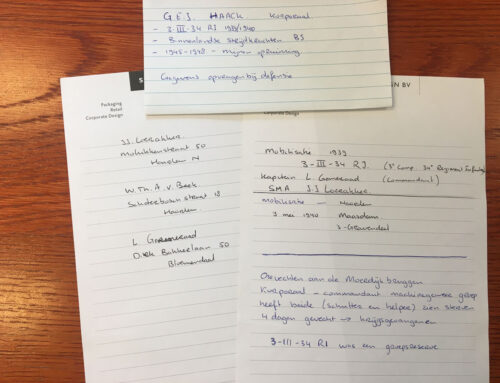 G.E.J. HAACK Korporaal
- 3-III-34 RI 1939/1940
- Binnenlandse strijdkrachten BS
- 1945-1948 - mijnen opruiming
Gegevens opvragen bij defensie
Packaging
Retail
Corporate Design
J.J. Loerakker
50
Haarlem N
W. Th. A. v. Beek
18
Haarlem
L
Dirk Bakkerlaan 50
Bloemendaal
BV
Corporate Design
Mobilisatie 1939
3-III-34 R.I. (3e Comp. 34e Regiment Infanterie)
Kapitein L. (Commandant)
SMA J.J Loerakker
Mobilisatie - Haarlem
3 mei 1940 Maasdam
s-Gravendeel
Gevechten aan de Moerdijk bruggen
Korporaal - commandant machinegeweer groep
heeft beide (schutter en helper) zien sterven
4 dagen gevecht → krijgsgevangenen
3-III-34 RI was een groepsreserve